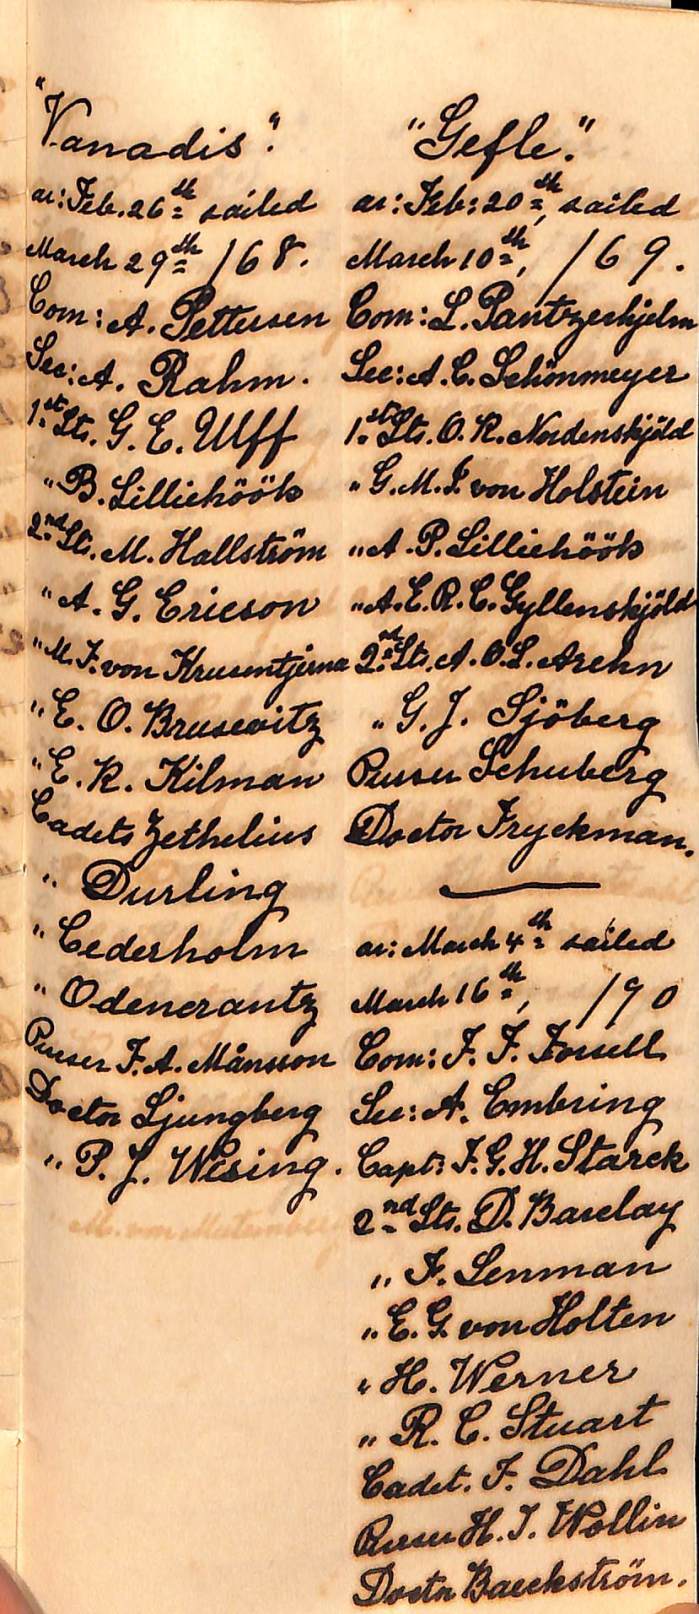 "Vanadis".
ar: Feb. 26th sailed
March 29th /68.
Com: A. Pettersen
Sec: A. Rahm.
1st Lts. G. E. Ulff
" B. Lilliehöök
2nd Lts. M. Hallström
" A. G. Ericson
" M. F. von Krusentjerna
" E. O. Brusewitz
" E. R. Kilman
Cadets Zethelius
" Durling
" Cederholm
" Odencrantz
Purser F. A. Månsson
Doctor Ljungberg
" P. J. Wising.
"Gefle."
ar: Feb: 20th, sailed
March 10th, /69.
Com: L. Pantzerhjelm
Sec: A. C. Schönmeyer
1st Lts. O. R. Nordenskjöld
" G. M. F. von Holstein
" A. P. Lilliehöök
" A. E. R. C. Gyllenskjöld
2nd Lts. A. O. L. Arehn
" G. J. Sjöberg
Purser Schuberg
Doctor Fryckman.
ar: March 4th sailed
March 16th, /70
Com: F. F. Forsell
Sec: A. Embring
Capt: F. G. H. Starck
2nd Lts. D. Barclay
" F. Lenman
" E. G. von Holten
" H. Werner
" R. C. Stuart
Cadet. F. Dahl
Purser H. J. Wollin
Doctor Baeckström.